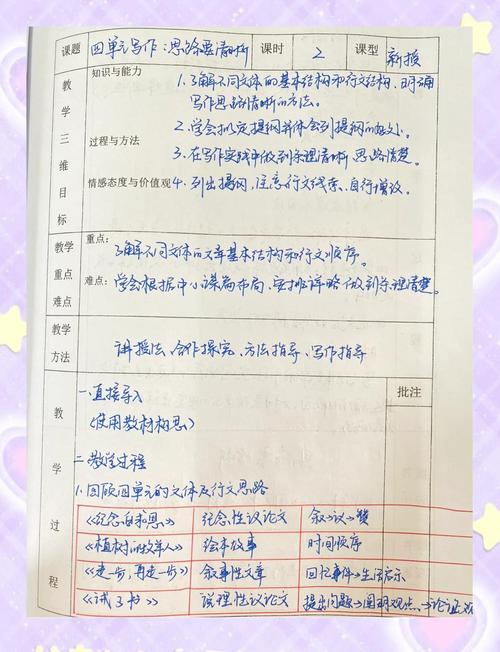 课题 四单元写作：思路要清晰 课时 2 课型 新授
教学三维目标
知识与能力 1.了解不同文体的基本结构和行文结构，明确
写作思路清晰的方法。
过程与方法 2.学会拟定提纲并体会到提纲的好处。
3.在写作实践中做到条理清晰，思路清楚。
情感态度与价值观 4.列出提纲，注意行文线索，自行增设。
教学重点难点
重点：
了解不同文体的文章基本结构和行文顺序。
难点：学会根据中心谋篇布局、安排详略，做到条理清楚。
教学方法 讲授法、合作探究、方法指导、写作指导
教学过程
批注
一.直接导入
(使用教材构思)
二.教学过程
1.回顾四单元的文体及行文思路
《纪念白求恩》 纪念性议论文 叙→议→赞
《植树的牧羊人》 绘本故事 时间顺序
《走一步，再走一步》 叙事性文章 回忆事件→生活启示
《诫子书》 说理性议论文 提出问题→阐明观点→论证